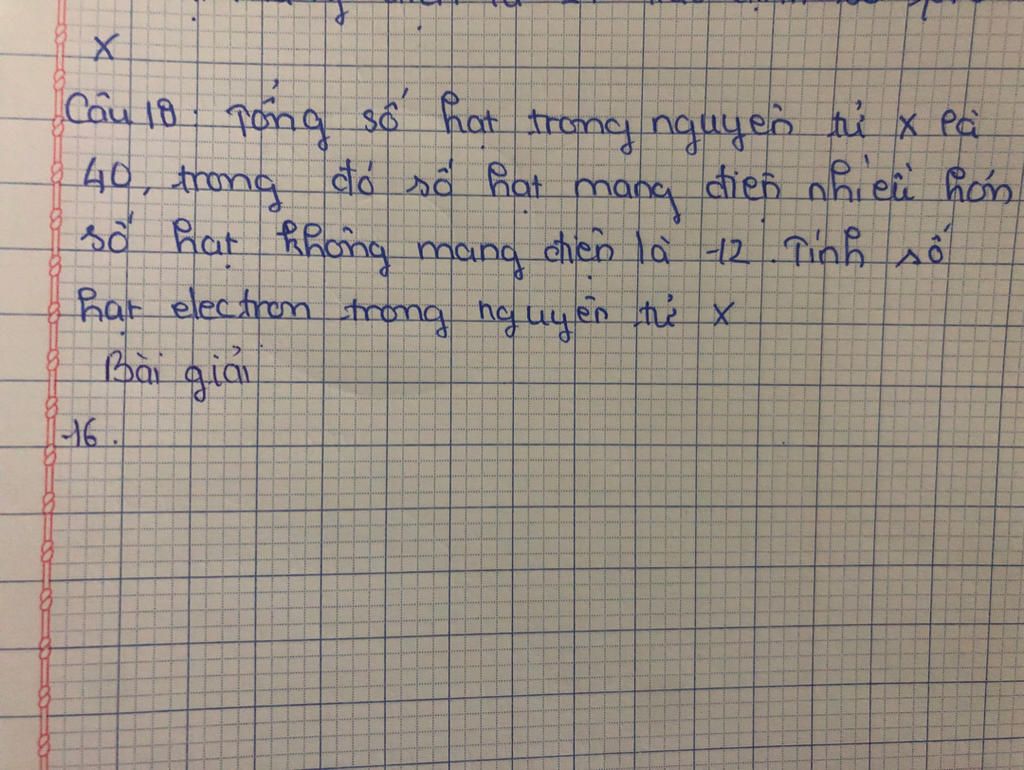 X
Câu 18: Tổng số hạt trong nguyên tử X là
40, trong đó số hạt mang điện nhiều hơn
số hạt không mang điện là 12. Tính số
hạt electron trong nguyên tử X
Bài giải
16.